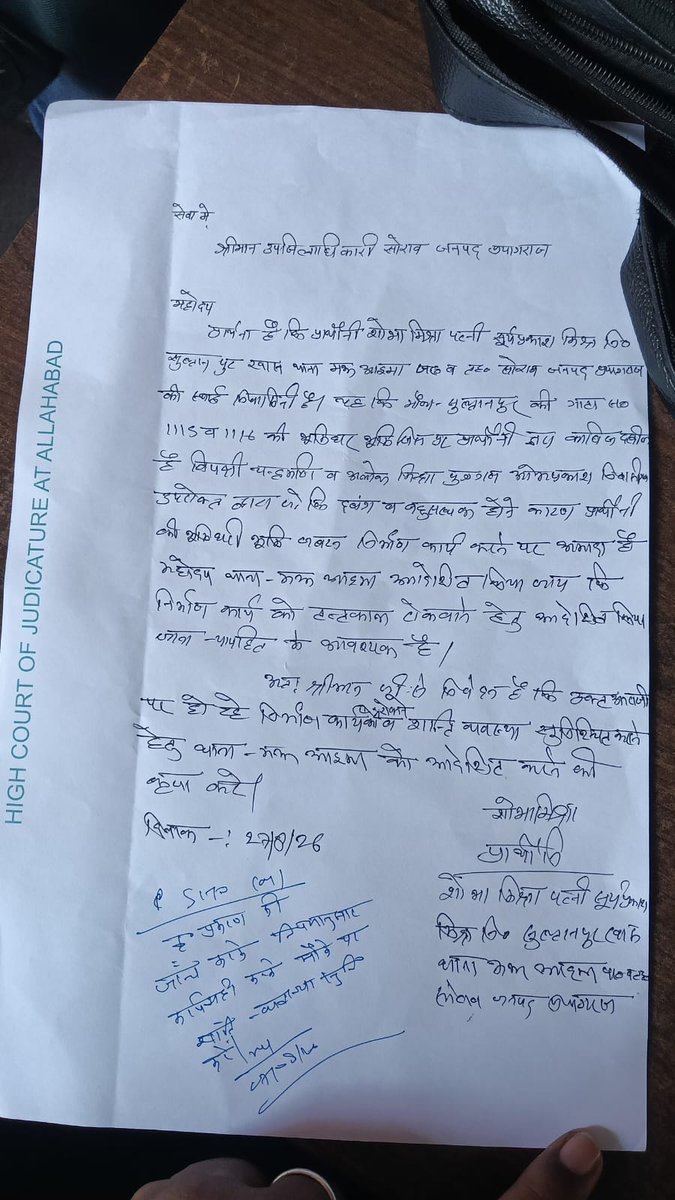 HIGH COURT OF JUDICATURE AT ALLAHABAD
सेवा में,
श्रीमान उपजिलाधिकारी सोरांव जनपद प्रयागराज
महोदय
प्रार्थना है कि प्रार्थीनी शोभा मिश्रा पत्नी सूर्यप्रकाश मिश्र नि०
सुल्तानपुर खास थाना मऊ आइमा व सोरांव जनपद प्रयागराज
की स्थाई निवासिनी है। यह कि मौजा- सुल्तानपुर की गाटा सं०
1115 व 1116 की भूमिधर प्रार्थीनी
है विपक्षी चन्द्रमणि व आलोक मिश्रा पुत्रगण ओमप्रकाश निवासीगण
उपरोक्त जो कि दबंग व होने कारण प्रार्थीनी
की भूमिधरी भूमि निर्माण कार्य करने पर आमादा है
महोदय थाना- मऊ आइमा आदेशित किया जाय कि
निर्माण कार्य को तत्काल रोकवाने हेतु आदेशित किया
जाना न्यायहित के आवश्यक है।
अतः श्रीमान जी से निवेदन है कि उक्त आराजी
पर हो रहे निर्माण कार्य को रोकवाने व शान्ति व्यवस्था सुनिश्चित करने
हेतु थाना- मऊ आइमा को आदेशित करने की
कृपा करें।
दिनांक -:
शोभा मिश्रा
प्रार्थीनि
शोभा मिश्रा पत्नी सूर्यप्रकाश
मिश्रा नि० सुल्तानपुर खास
थाना मऊ आइमा
सोरांव जनपद प्रयागराज
प्रकरण की
जांच करके नियमानुसार
कार्यवाही करें मौके पर
करें